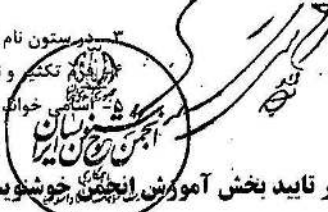 ۳- در ستون نام
۴- فرم تکثیر و
۵- اسامی خوانا
انجمن خوشنویسان ایران
تایید بخش آموزش انجمن خوشنویس